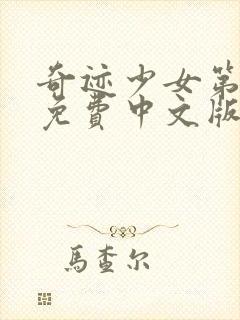 奇迹少女第
免費中文版
馬查尔